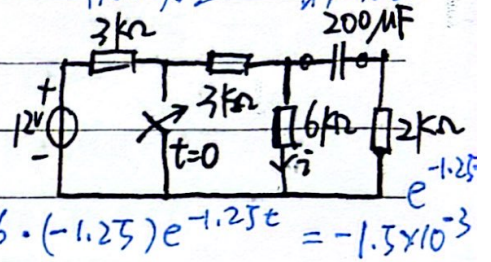 3kΩ
200μF
+
12V
-
t=0
3kΩ
6kΩ
i
2kΩ
e^{-1.25
6·(-1.25)e^{-1.25t} = -1.5×10^{-3}